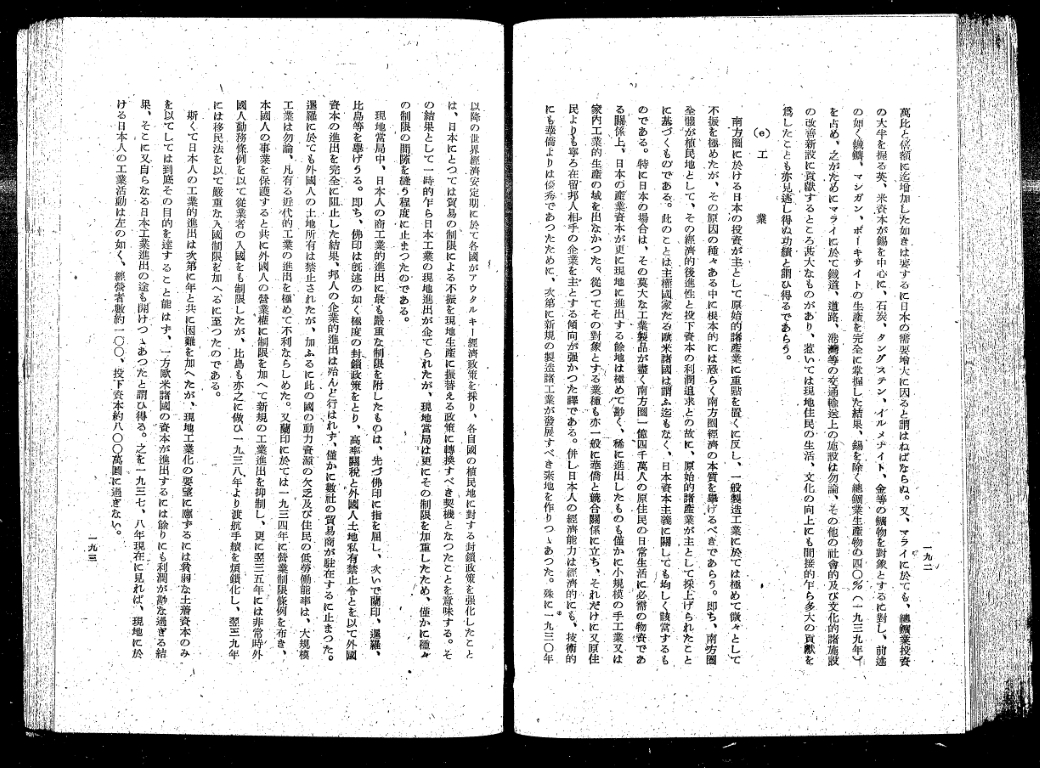 一九二
萬比と倍額に迄增加した如きは要するに日本の需要增大に因ると謂はねばならぬ。又、マライに於ても、總鑛業投資
の大半を握る英、米資本が錫を中心に、石炭、タングステン、イルメナイト、金等の鑛物を對象とするに對し、前述
の如く鐵鑛、マンガン、ボーキサイトの生產を完全に掌握した結果、錫を除く總鑛業生產物の四〇%(一九三九年)
を占め、之がためにマライに於て鐵道、道路、港灣等の交通輸送上の施設は勿論、その他の社會的及び文化的諸施設
の改善新設に貢獻するところ甚大なものがあり、惹いては現地住民の生活、文化の向上にも間接的乍ら多大の貢獻を
爲したことも亦見逃し得ぬ功績と謂ひ得るであらう。
(e) 工業
南方圈に於ける日本の投資が主として原始的諸產業に重點を置くに反し、一般製造工業に於ては極めて微々として
不振を極めたが、その原因の種々ある中に根本的には恐らく南方圈經濟の本質を擧げるべきであらう。即ち、南方圈
全體が植民地として、その經濟的後進性と投下資本の利潤追求との故に、原始的諸產業が主として採上げられたこと
に基づくものである。此のことは主權國家たる歐米諸國は謂ふ迄もなく、日本資本主義に關しても均しく該當するも
のである。特に日本の場合は、その莫大な工業製品が盡く南方圈一億四千萬人の原住民の日常生活に必需の物資であ
る關係上、日本の產業資本が更に現地に進出する餘地は極めて尠く、稀に進出したものも僅かに小規模の手工業又は
家內工業的生產の域を出なかつた。從つてその對象とする業種も亦一般に華僑と競合關係に立ち、それだけに又原住
民よりも寧ろ在留邦人相手の企業を主とする傾向が强かつた譯である。併し日本人の經濟能力は經濟的にも、技術的
にも華僑よりは優秀であつたために、次第に新規の製造諸工業が發展すべき素地を作りつゝあつた。殊に一九三〇年
以降の世界經濟安定期に於て各國がアウタルキー經濟政策を採り、各自國の植民地に對する封鎖政策を强化したこと
は、日本にとつては貿易の制限による不振を現地生產に振替える政策に轉換すべき契機となつたことを意味する。そ
の結果として一時的乍ら日本工業の現地進出が企てられたが、現地當局は更にその制限を加重したため、僅かに種々
の制限の間隙を縫う程度に止まつたのである。
現地當局中、日本人の商工業的進出に最も嚴重な制限を附したものは、先づ佛印に指を屈し、次いで蘭印、暹羅、
比島等を擧げうる。即ち、佛印は既述の如く極度の封鎖政策をとり、高率關稅と外國人土地私有禁止令とを以て外國
資本の進出を完全に阻止した結果、邦人の企業的進出は殆んど行はれず、僅かに數社の貿易商が駐在するに止まつた。
暹羅に於ても外國人の土地所有は禁止されたが、加ふるに此の國の動力資源の欠乏及び住民の低勞働能率は、大規模
工業は勿論、凡有る近代的工業の進出を極めて不利ならしめた。又蘭印に於ては一九三四年に營業制限條例を布き、
本國人の事業を保護すると共に外國人の營業權に制限を加へて新規の工業進出を抑制し、更に翌三五年には非常時外
國人勤務條例を以て從業者の入國をも制限したが、比島も亦之に倣ひ一九三八年より渡航手續を煩鎖化し、翌三九年
には移民法を以て嚴重な入國制限を加へるに至つたのである。
斯くて日本人の工業的進出は次第に年と共に困難を加へたが、現地工業化の要望に應ずるには貧弱な土着資本のみ
を以てしては到底その目的を達すること能はず、一方歐米諸國の資本が進出するには餘りにも利潤が尠な過ぎる結
果、そこに又自らなる日本工業進出の途も開けつゝあつたと謂ひ得る。之を一九三七、八年現在に見れば、現地に於
ける日本人の工業活動は左の如く、經營者數約一〇〇、投下資本約八〇〇萬圓に過ぎない。
一九三